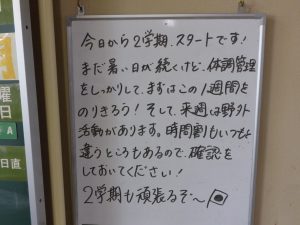 今日から2学期、スタートです!
まだ暑い日が続くけど、体調管理
をしっかりして、まずはこの1週間を
のりきろう! そして、来週は野外
活動があります。時間割もいつもと
違うところもあるので、確認を
しておいてください!
2学期も頑張るぞ〜
曜
日
A
日直